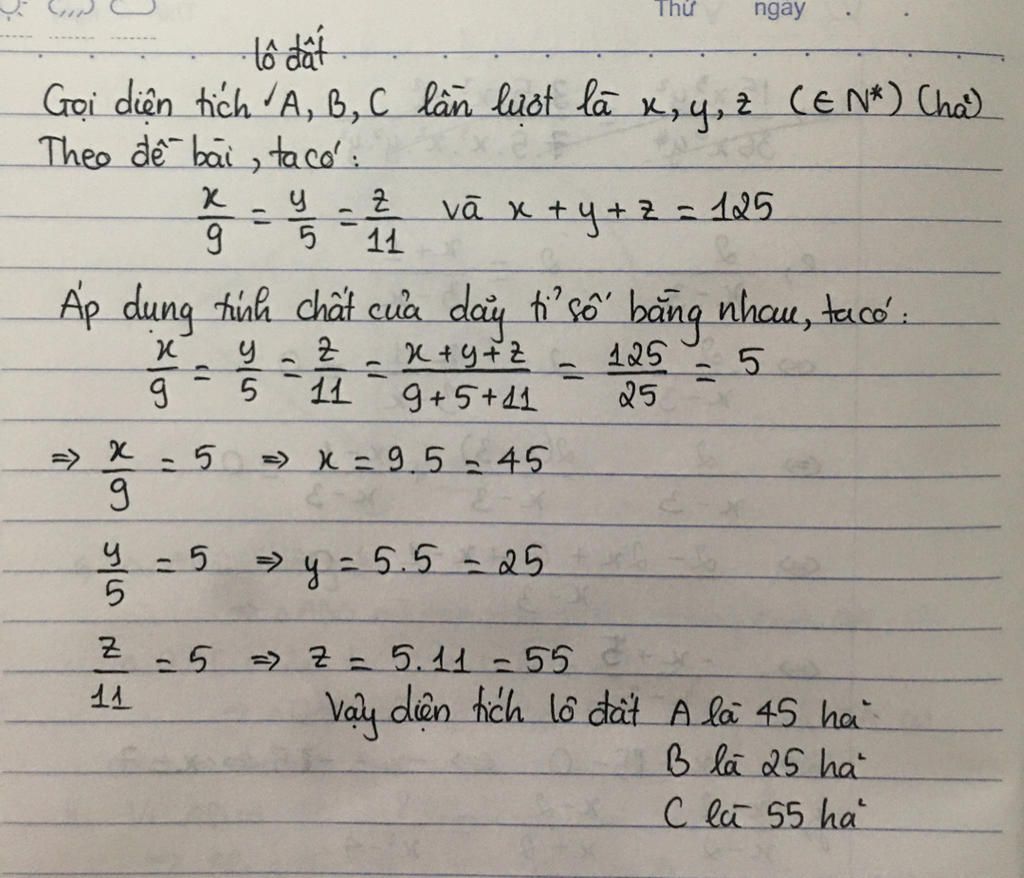 Thứ ngày . .
lô đất
Gọi diện tích ✓A, B, C lần lượt là x, y, z (∈ N*) (ha²)
Theo đề bài, ta có:
x/9 = y/5 = z/11 và x + y + z = 125
Áp dụng tính chất của dãy tỉ số bằng nhau, ta có:
x/9 = y/5 = z/11 = (x + y + z)/(9 + 5 + 11) = 125/25 = 5
⇒ x/9 = 5 ⇒ x = 9.5 = 45
y/5 = 5 ⇒ y = 5.5 = 25
z/11 = 5 ⇒ z = 5.11 = 55
Vậy diện tích lô đất A là 45 ha²
B là 25 ha²
C là 55 ha²